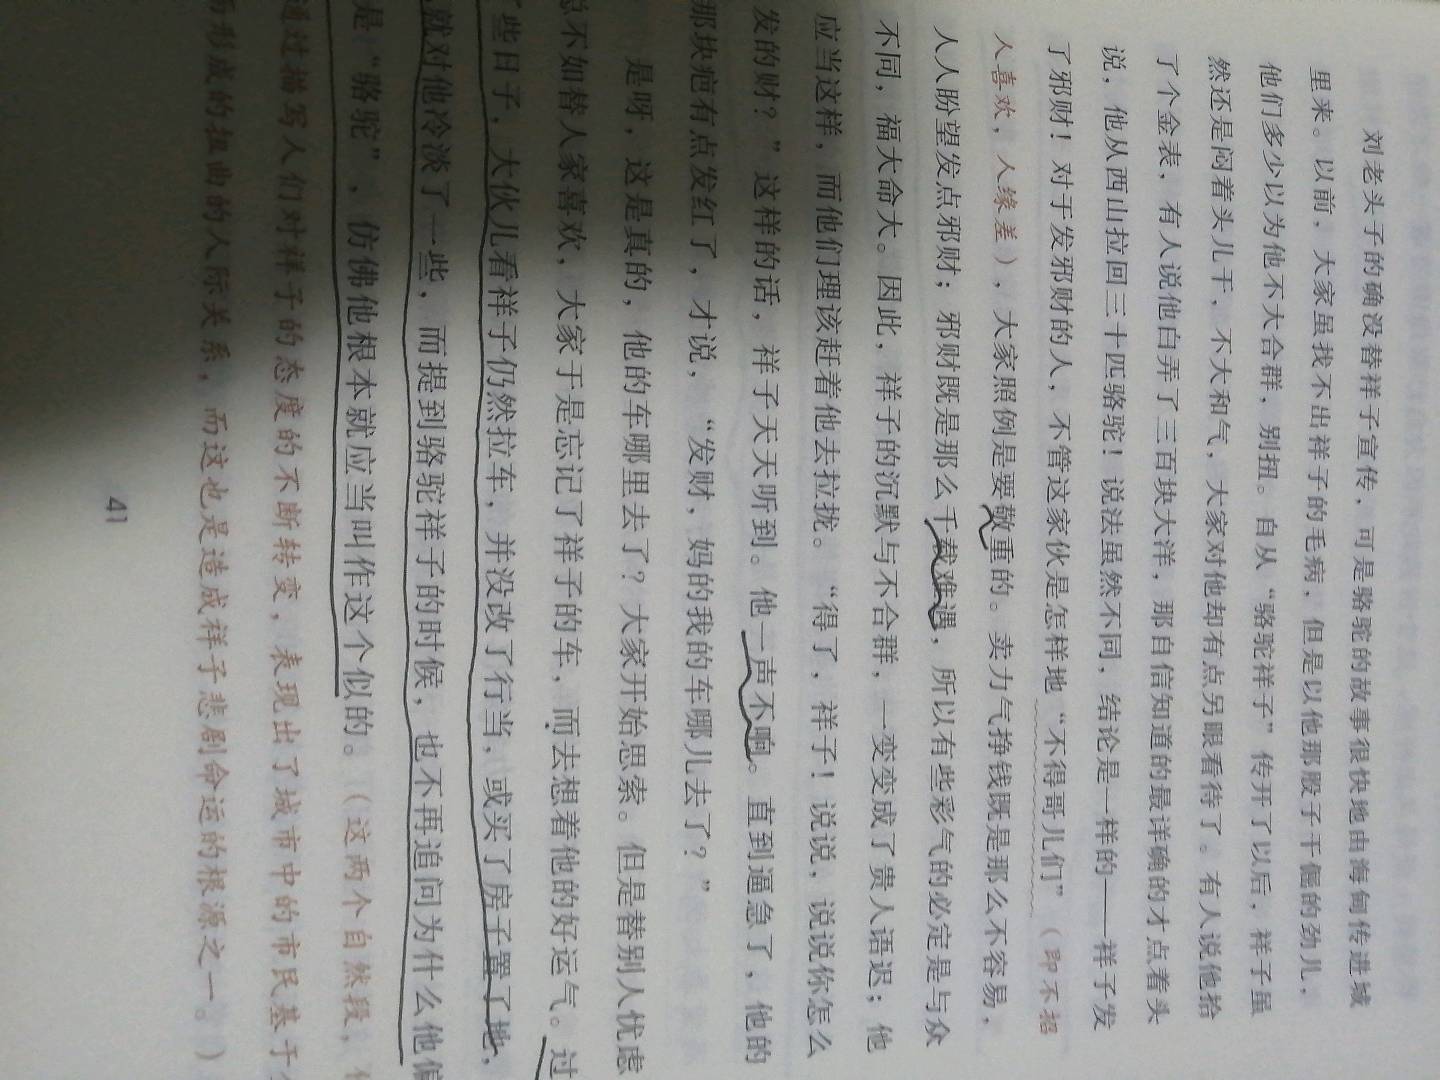 刘老头子的确没替祥子宣传，可是骆驼的故事很快地由海甸传进城
里来。以前，大家虽找不出祥子的毛病，但是以他那股子干倔的劲儿，
他们多少以为他不大合群，别扭。自从“骆驼祥子”传开了以后，祥子虽
然还是闷着头儿干，不大和气，大家对他却有点另眼看待了。有人说他拾
了个金表，有人说他白弄了三百块大洋，那自信知道的最详确的才点着头
说，他从西山拉回三十匹骆驼！说法虽然不同，结论是一样的——祥子发
了邪财！对于发邪财的人，不管这家伙是怎样地“不得哥儿们”（即不招
人喜欢，人缘差），大家照例是要敬重的。卖力气挣钱既是那么不容易，
人人盼望发点邪财；邪财既是那么千载难遇，所以有些彩气的必定是与众
不同，福大命大。因此，祥子的沉默与不合群，一变变成了贵人语迟；他
应当这样，而他们理该赶着他去拉拢。“得了，祥子！说说，说说你怎么
发的财？”这样的话，祥子天天听到。他一声不响。直到逼急了，他的
那块疤有点发红了，才说，“发财，妈的我的车哪儿去了？”
是呀，这是真的，他的车哪里去了？大家开始思索。但是替别人忧虑
总不如替人家喜欢，大家于是忘记了祥子的车，而去想着他的好运气。过
了些日子，大伙儿看祥子仍然拉车，并没改了行当，或买了房子置了地，
就对他冷淡了一些，而提到骆驼祥子的时候，也不再追问为什么他偏
是“骆驼”，仿佛他根本就应当叫作这个似的。（这两个自然段，
通过描写人们对祥子的态度的不断转变，表现出了城市中的市民基于
而形成的扭曲的人际关系，而这也是造成祥子悲剧命运的根源之一。）
41